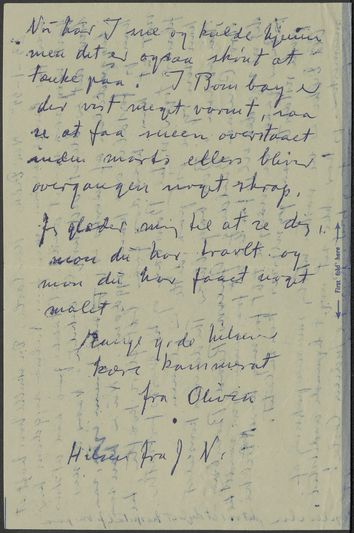 Nu har I sne og kulde hjemme
men det er ogsaa skönt at
tænke paa. I Bombay er
der vist meget varmt, saa
se at faa sneen overstaaet
inden marts ellers bliver
overgangen noget skrap.
Jeg glæder mig til at se dig,
mon du har travlt og
mon du har faaet noget
malet.
Mange gode hilsner
kære kammerat
fra Olivia
Hilsen fra J N.
First fold here